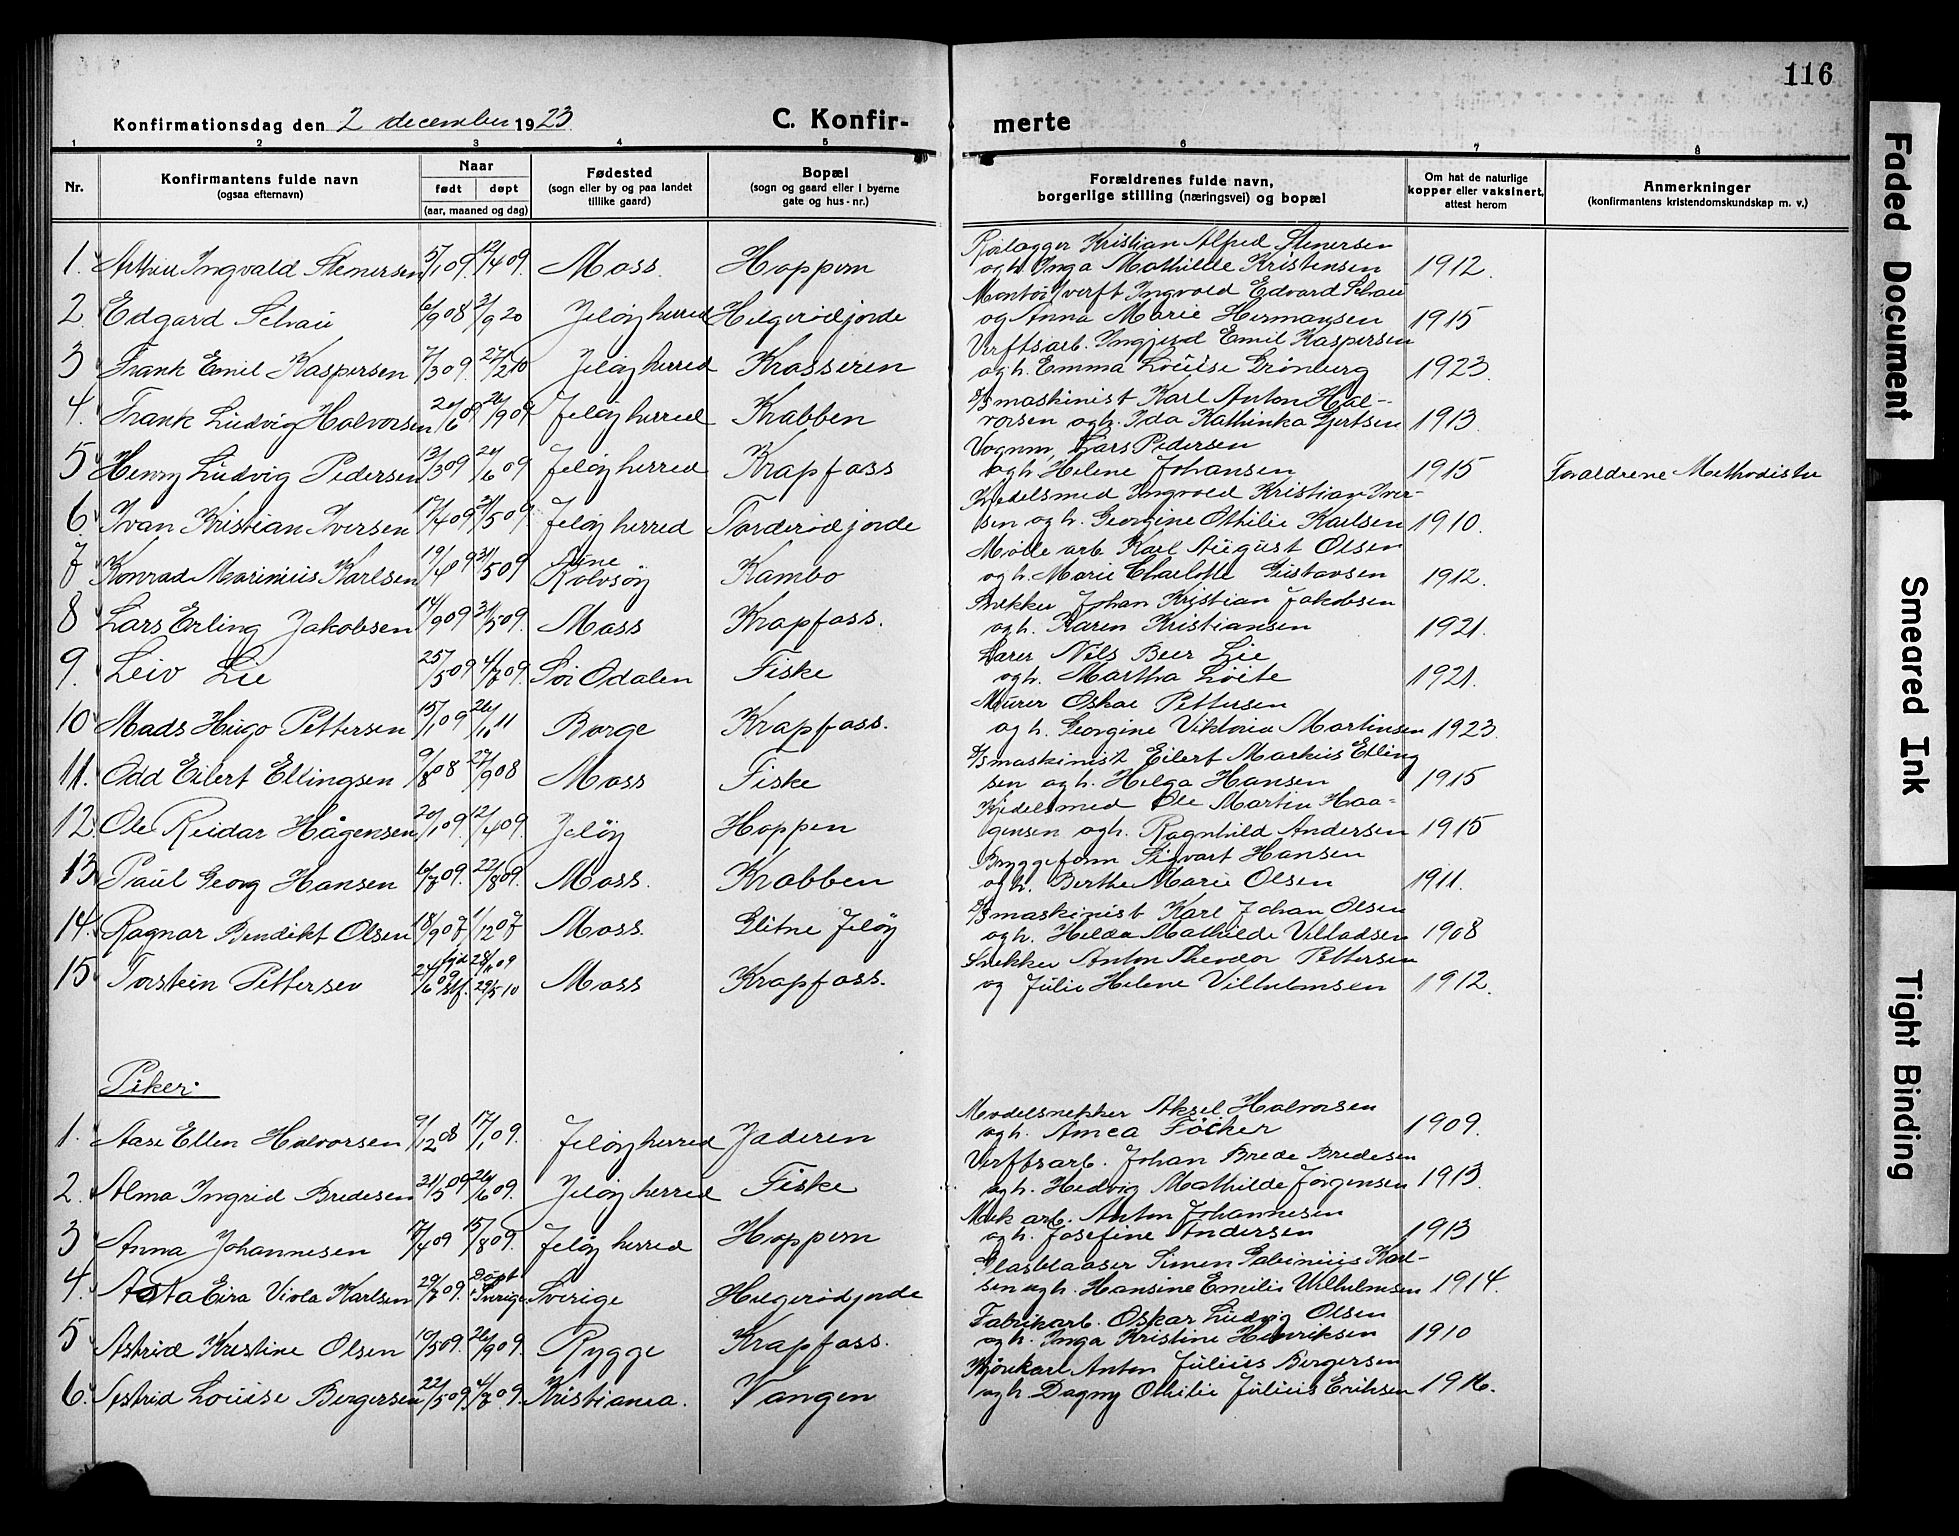 116
Konfirmationsdag den 2 december 1923.
C. Konfir-
merte
1 2 3 4 5 6 7 8
Nr.
Konfirmantens fulde navn
(ogsaa efternavn)
Naar
født døpt
(aar, maaned og dag)
Fødested
(sogn eller by og paa landet
tillike gaard)
Bopæl
(sogn og gaard eller i byerne
gate og hus-nr.)
Forældrenes fulde navn,
borgerlige stilling (næringsvei) og bopæl
Om hat de naturlige
kopper eller vaksinert,
attest herom
Anmerkninger
(konfirmantens kristendomskundskap m. v.)
Rørlægger Kristian Alfred Stenersen
1. Arthur Ingvald Stenersen 5/1 09. 12/4 09. Moss. Hoppern og h. Inga Mathilde Kristensen 1912.
Montør v/verft Ingvald Edvard Schau
2. Edgard Schau 6/9 08 3/9 20 Jeløy herred Helgerødjorde og Anna Marie Hermansen 1915
Verftsarb. Ingjeld Emil Kaspersen
3 Frank Emil Kaspersen 7/3 09. 27/2 10 Jeløy herred Krosseren og h. Emma Louise Grönberg 1923.
D/S maskinist Karl Anton Hal-
4. Frank Ludvig Halvorsen 2/6 09 26/9 09 Jeløy herred Krabben vorsen og h. Ida Kathinka Gjertsen 1913
Vognm. Lars Pedersen
5 Henry Ludvig Pedersen 13/3 09 27/6 09 Jeløy herred Krapfoss og h. Helene Johansen 1915 Forældrene Methodister
Kjedelsmed Ingvald Kristian Iver-
6. Ivan Kristian Iversen 17/4 09 31/5 09 Jeløy herred Torderødjorde sen og h. Georgine Othilie Karlsen 1910.
Mölle arb. Karl August Olsen
7 Konrad Marinius Karlsen 19/4 09 31/5 09 Rolvsöy Kambo og h. Marie Charlotte Gustavsen 1912.
Snekker Johan Kristian Jakobsen
8 Lars Erling Jakobsen 14/9 09 31/5 09. Moss Krapfoss. og h. Karen Kristiansen 1921.
Lærer Nils Beer Lie
9. Leiv Lie 25/5 09 4/7 09. Sör Odalen Fiske og h. Martha Löite 1921.
Murer Oskar Pettersen
10 Mads Hugo Pettersen 15/1 09 26/10 11 Borge Krapfoss. og h. Georgine Viktoria Martinsen 1923.
D/S maskinist Eilert Markus Elling
11. Odd Eilert Ellingsen 9/8 08 27/9 08 Moss Fiske sen og h. Helga Hansen 1915
Kjedelsmed Ole Martin Haa-
12. Ole Reidar Hågensen 20/1 09. 12/4 09. Jelöy Hoppen gensen og h. Ragnhild Andersen 1915
Bryggeform. Sigvart Hansen
13 Paul Georg Hansen 6/7 09. 22/8 09. Moss. Krabben og h. Berthe Marie Olsen 1911.
D/S maskinist Karl Johan Olsen
14. Ragnar Bendikt Olsen 18/9 07 1/12 07 Moss. Glitne Jelöy og h. Hilda Mathilde Villadsen 1908
Snekker Anton Theodor Pettersen
15. Torstein Pettersen 24/6 09 hjd 28/11 09 stf. 29/5 10 Moss Krapfoss. og Julie Helene Vilhelmsen 1912.
Piker.
Modelsnekker Aksel Halvorsen
1. Aase Ellen Halvorsen 9/12 08 17/1 09. Jelöy herred Jaderen og h. Amea Föcker 1909.
Verftsarb. Johan Brede Bredesen
2. Alma Ingrid Bredesen 31/5 09 26/6 09. Jelöy herred Fiske og h. Hedvig Mathilde Jörgensen 1913.
Mek arb. Anton Johannesen
3 Anna Johannesen 17/4 09 15/8 09. Jelöy herred Hoppern og h. Josefine Andersen 1913
Glasblaaser Simen Gabinius Karl-
4. Asta Eira Viola Karlsen 29/7 09. Döpt i Sverige Sverige Helgerödjorde sen og h. Hansine Emilie Wilhelmsen 1914.
Fabrikarb. Oskar Ludvig Olsen
5 Astrid Kristine Olsen 10/5 09. 26/9 09. Rygge Krapfoss. og h. Inga Kristine Henriksen 1910
Kjörekarl Anton Julius Bergersen
6. Astrid Louise Bergersen 22/5 09. 4/7 09. Kristiania. Vangen og h. Dagny Othilie Julius Eriksen 1916.
Faded Document
Smeared Ink
Tight Binding